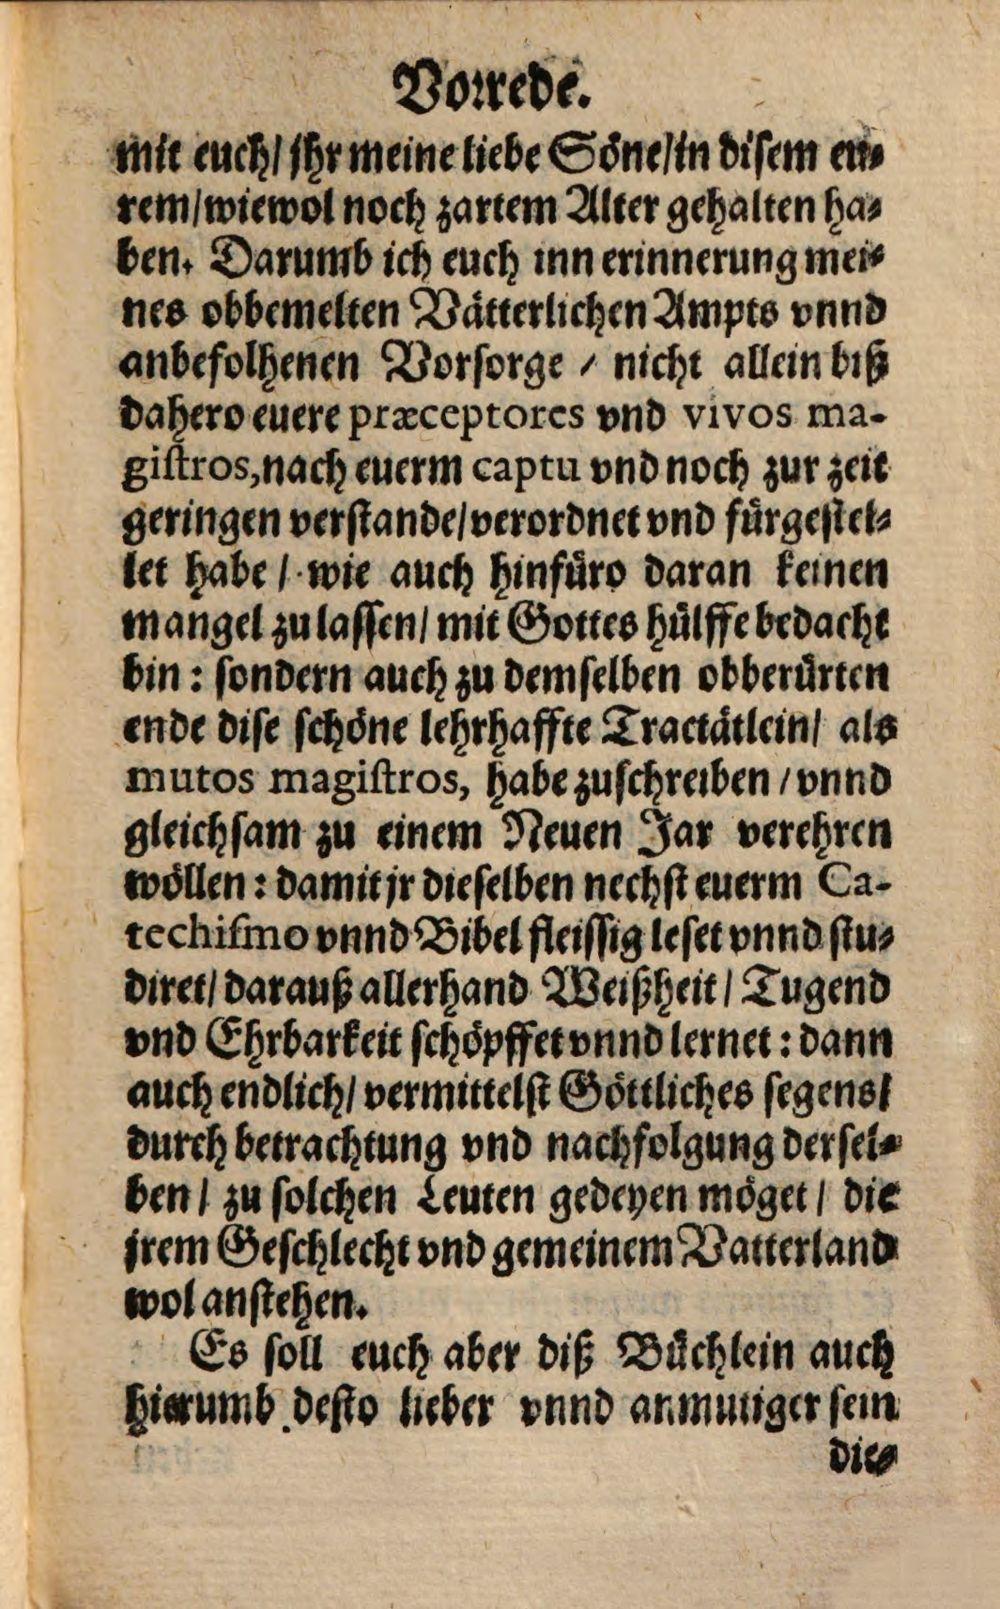 Vorrede.
mit euch/ jhr meine liebe Söne/in disem eu⸗
rem/wiewol noch zartem Alter gehalten ha⸗
ben. Darumb ich euch inn erinnerung mei⸗
nes obbemelten Vätterlichen Ampts vnnd
anbefolhenen Vorsorge / nicht allein biß
dahero euere præceptores vnd vivos ma-
gistros, nach euerm captu vnd noch zur zeit
geringen verstande/verordnet vnd fürgestel⸗
let habe / wie auch hinfüro daran keinen
mangel zu lassen/ mit Gottes hülffe bedacht
bin: sondern auch zu demselben obberürten
ende dise schöne lehrhaffte Tractätlein/ als
mutos magistros, habe zuschreiben /vnnd
gleichsam zu einem Neuen Jar verehren
wöllen: damit jr dieselben nechst euerm Ca-
techismo vnnd Bibel fleissig leset vnnd stu⸗
diret/ darauß allerhand Weißheit / Tugend
vnd Ehrbarkeit schöpffet vnnd lernet: dann
auch endlich/ vermittelst Göttliches segens/
durch betrachtung vnd nachfolgung dersel⸗
ben / zu solchen Leuten gedeyen möget / die
jrem Geschlecht vnd gemeinem Vatterland
wol anstehen.
Es soll euch aber diß Büchlein auch
hierumb desto lieber vnnd anmutiger sein
die⸗